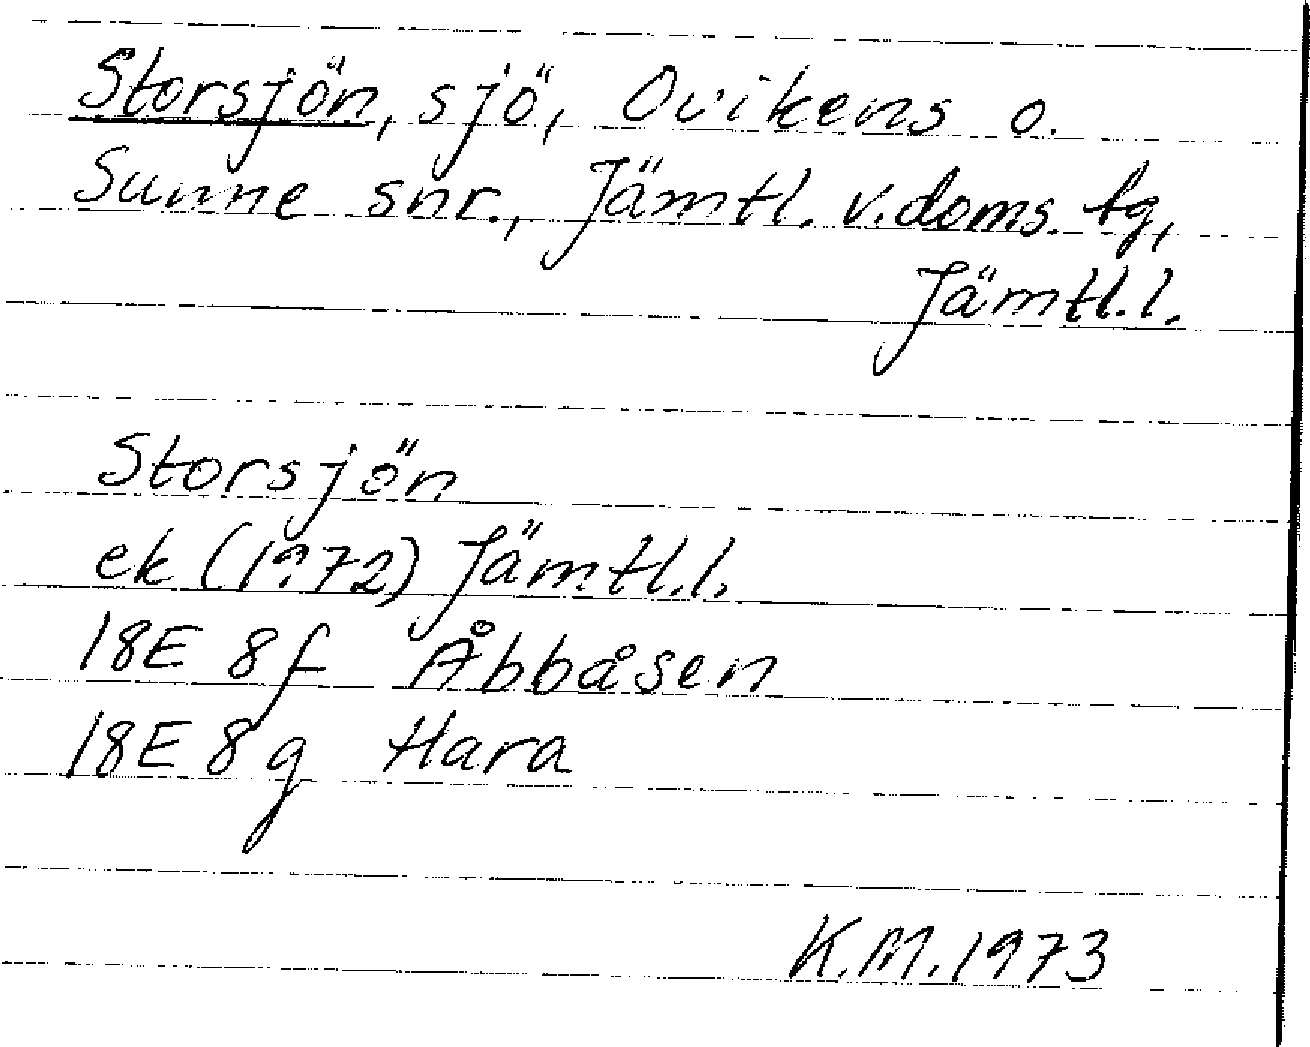 Storsjön, sjö, Ovikens o.
Sunne snr., Jämtl. v. doms. tg,
Jämtl. l.
Storsjön
ek (1972) Jämtl. l.
18E 8f Åbbåsen
18E 8g Hara
K.M. 1973